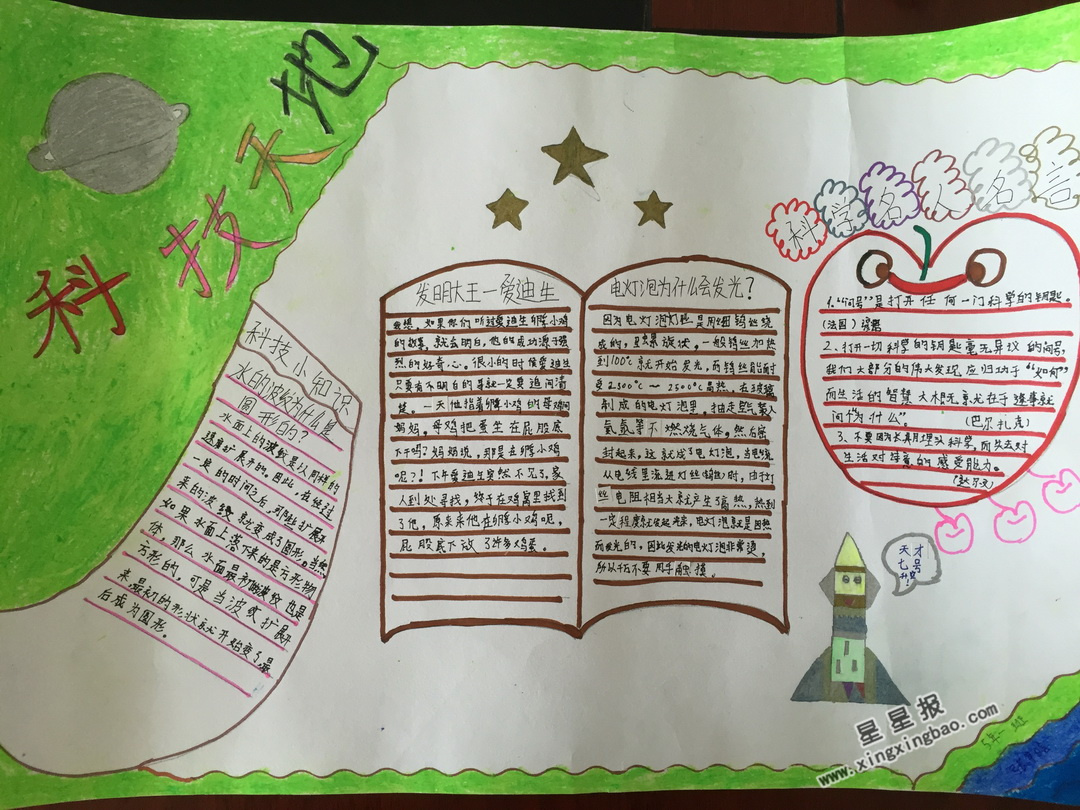 科技天地
科技小知识
水的波纹为什么是
圆形的？
水面上的波纹是以同样的
速度扩展开的。因此，在经过
一定的时间之后，可
来的波纹就变成了圆形。当然
如果水面上落下来的是方形物
体，那么水面最初的波纹也是
方形的，可是当波纹扩展开
来，最初的形状就开始变了，最
后成为圆形。
发明大王—爱迪生
我想，如果你们听过爱迪生孵小鸡
的故事，就会明白，他的成功源于强
烈的好奇心。很小的时候爱迪生
只要有不明白的事就一定要追问清
楚。一天他指着孵小鸡的母鸡问
妈妈，母鸡把蛋坐在屁股底
下干吗？妈妈说，那是在孵小鸡
呢？！下午爱迪生突然不见了，家
人到处寻找，终于在鸡窝里找到
了他，原来他在孵小鸡呢，
屁股底下放了许多鸡蛋。
电灯泡为什么会发光？
因为电灯泡灯丝是用细钨丝绕
成的，呈螺旋状，一般钨丝加热
到100℃就开始发光，而钨丝能耐
受2300℃～2500℃高热，在玻璃
制成的电灯泡里，抽走空气装入
氩氮等不燃烧气体，然后密
封起来，这就成了电灯泡，当电流
从电线里流进灯丝(钨丝)时，由于灯
丝电阻相当大就产生了高热，热到
一定程度就发起光来，电灯泡就是因热
而发光的，因此发光的电灯泡非常烫，
所以千万不要用手触摸。
科学名人名言
1、“问号”是打开任何一门科学的钥匙。
(法国)谚语
2、打开一切科学的钥匙毫无异议的问号，
我们大部分的伟大发现应归功于“如何”
而生活的智慧大概就在于逢事就
问“为什么”。(巴尔扎克)
3、不要因为长期埋头科学，而失去对
生活对诗意的感受能力。
(达尔文)
天才
七号
升空！
5年一班
星星报
www.xingxingbao.com